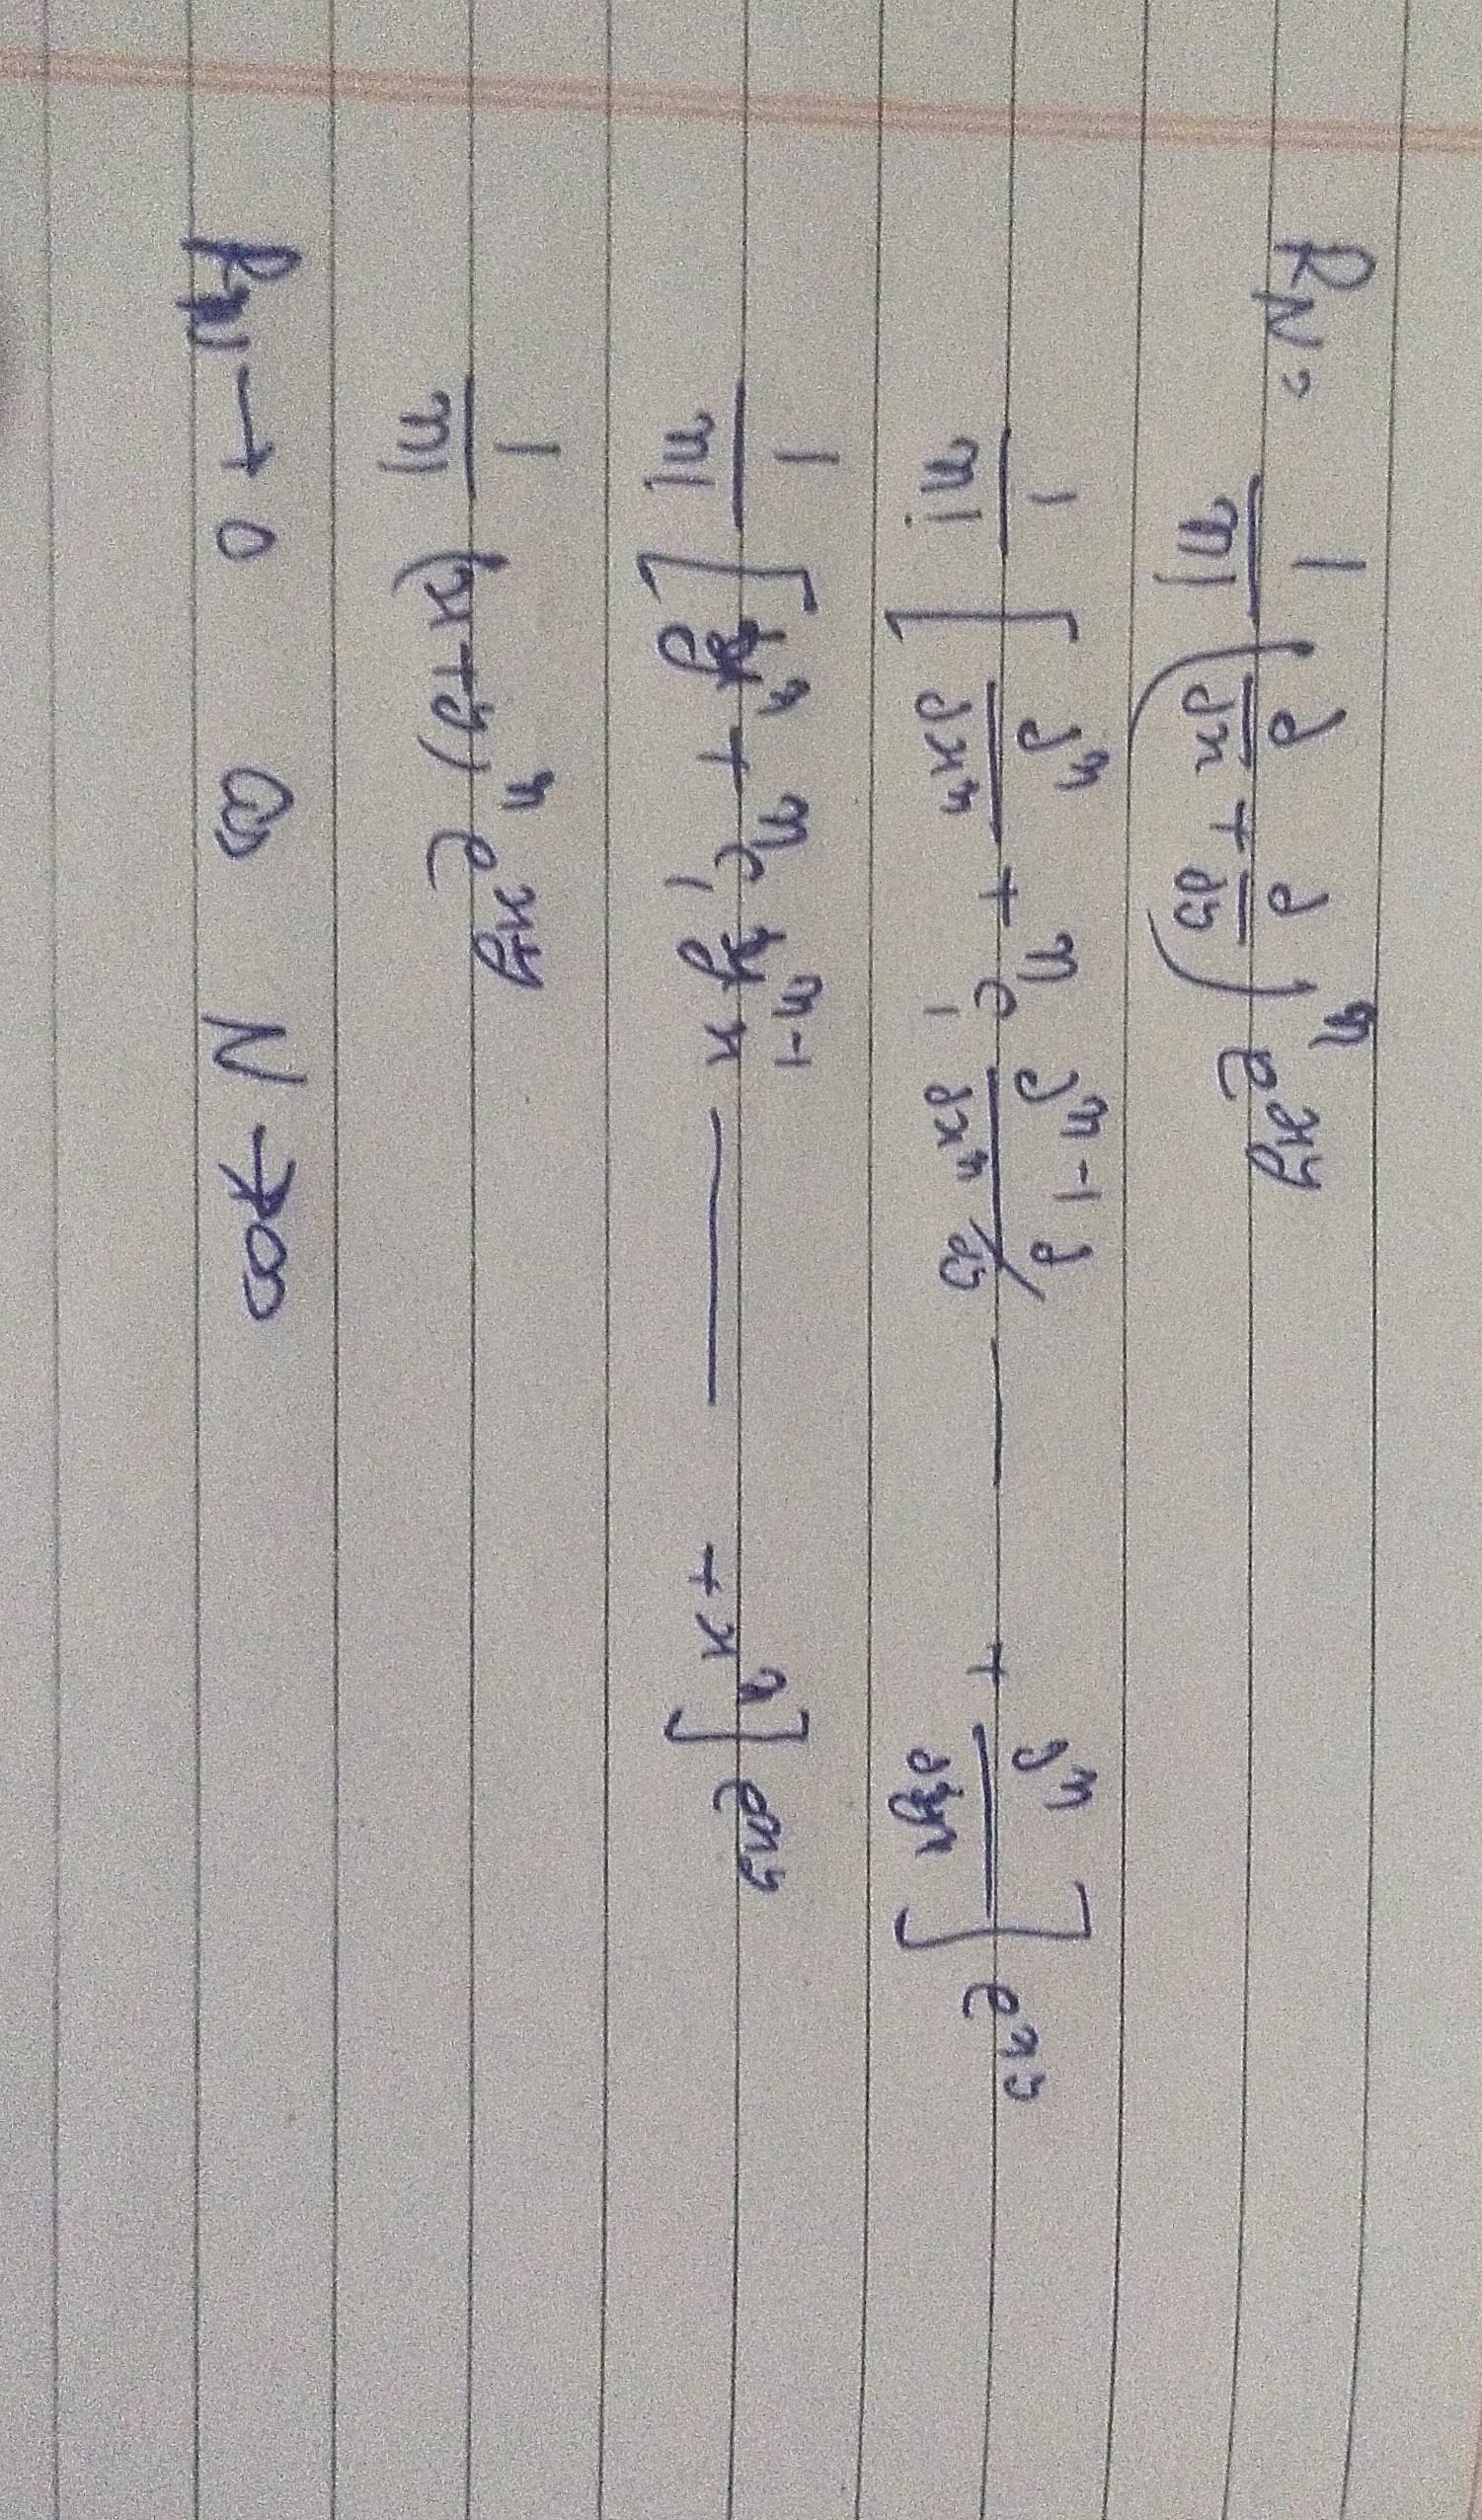 R_N = 1/n! (∂/∂x + ∂/∂y)^n e^{xy}
1/n! [∂^n/∂x^n + ^nC_1 ∂^{n-1} ∂/∂x^n ∂y — + ∂^n/∂y^n] e^{xy}
1/n! [y^n + ^nC_1 y^{n-1} x — + x^n] e^{xy}
1/n! (x+y)^n e^{xy}
R_N → 0 as N → ∞